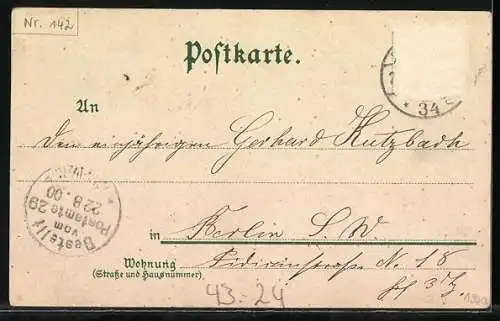 Nr. 142
Postkarte.
An
den einjährigen Gerhard Kutzbach
Bestellt
vom
Postamte 29
22.8.00
* 34
in Berlin S. W.
Wohnung
(Straße und Hausnummer)
No 18
43-24